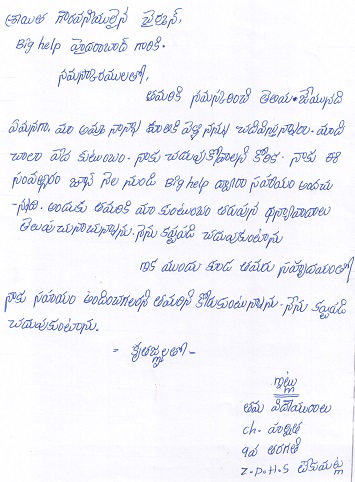 శ్రీయుత గౌరవనీయులైన చైర్మన్,
Big help హైదరాబాద్ గారికి.
నమస్కారములతో,
తమరికి నమస్కరించి తెలియ చేయునది
ఏమనగా, మా అమ్మ నాన్న కూలికి వెళ్లి నన్ను చదివిస్తున్నారు. మాది
చాలా పేద కుటుంబం. నాకు చదువుకోవాలని కోరిక. నాకు ఈ
సంవత్సరం జూన్ నెల నుండి Big help ద్వారా సహాయం అందు
-న్నది. అందుకు తమరికి మా కుటుంబం తరుపున ధన్యావాదాలు
తెలుపుచున్నాను. నేను కష్టపడి చదువుకుంటాను
ఇక ముందు కూడ తమరు సహృదయంతో
నాకు సహాయం అందించగలరని తమరిని కోరుకుంటున్నాను. నేను కష్టపడి
చదువుకుంటాను.
= కృతజ్ఞతలతో -
ఇట్లు
తమ విధేయురాలు
ch.
9వ తరగతి
Z.P.H.S టేకుమట్ల